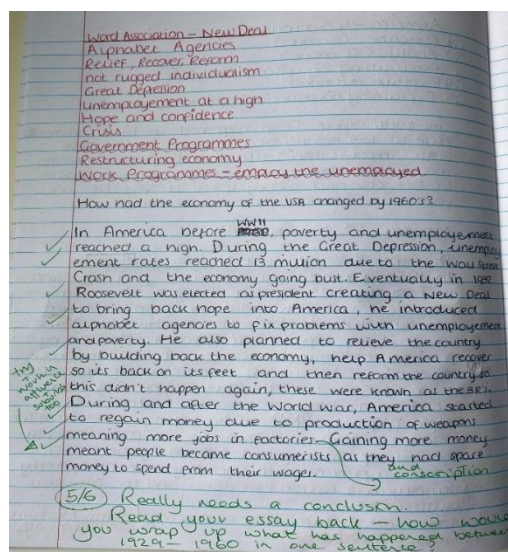 Word Association - New Deal
Alphabet Agencies
Relief, Recover, Reform
not rugged individualism
Great Depression
unemployement at a high
Hope and confidence
Crisis
Government Programmes
Restructuring economy
Work Programmes - employ the unemployed
How had the economy of the USA changed by 1960's?
WWII
In America before , poverty and unemployement
reached a high. During the Great Depression, unemploy
ement rates reached 13 million due to the Wall Street
Crash and the economy going bust. Eventually in 1932
Roosevelt was elected as president creating a New Deal
to bring back hope into America, he introduced
alphabet agencies to fix problems with unemployement
and poverty. He also planned to relieve the country
by building back the economy, help America recover
so its back on its feet and then reform the country so
this didn't happen again, these were known as the 3R's.
During and after the World war, America started
to regain money due to production of weapons
meaning more jobs in factories. Gaining more money
meant people became consumerists as they had space
money to spend from their wages.
and
conscription
try
work in
affluence
too
5/6 Really needs a conclusion.
Read your essay back - how would
you wrap up what has happened between
1929 - 1960 in one sentence